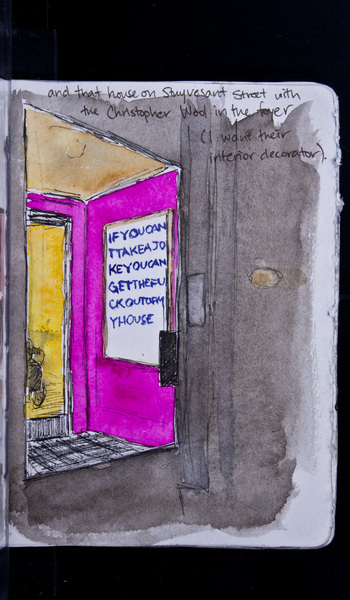 and that house on Stuyvesant Street with
the Christopher Wool in the foyer
(I want their
interior decorator).
IFYOUCAN
TTAKEAJO
KEYOUCAN
GETTHEFU
CKOUTOFM
YHOUSE